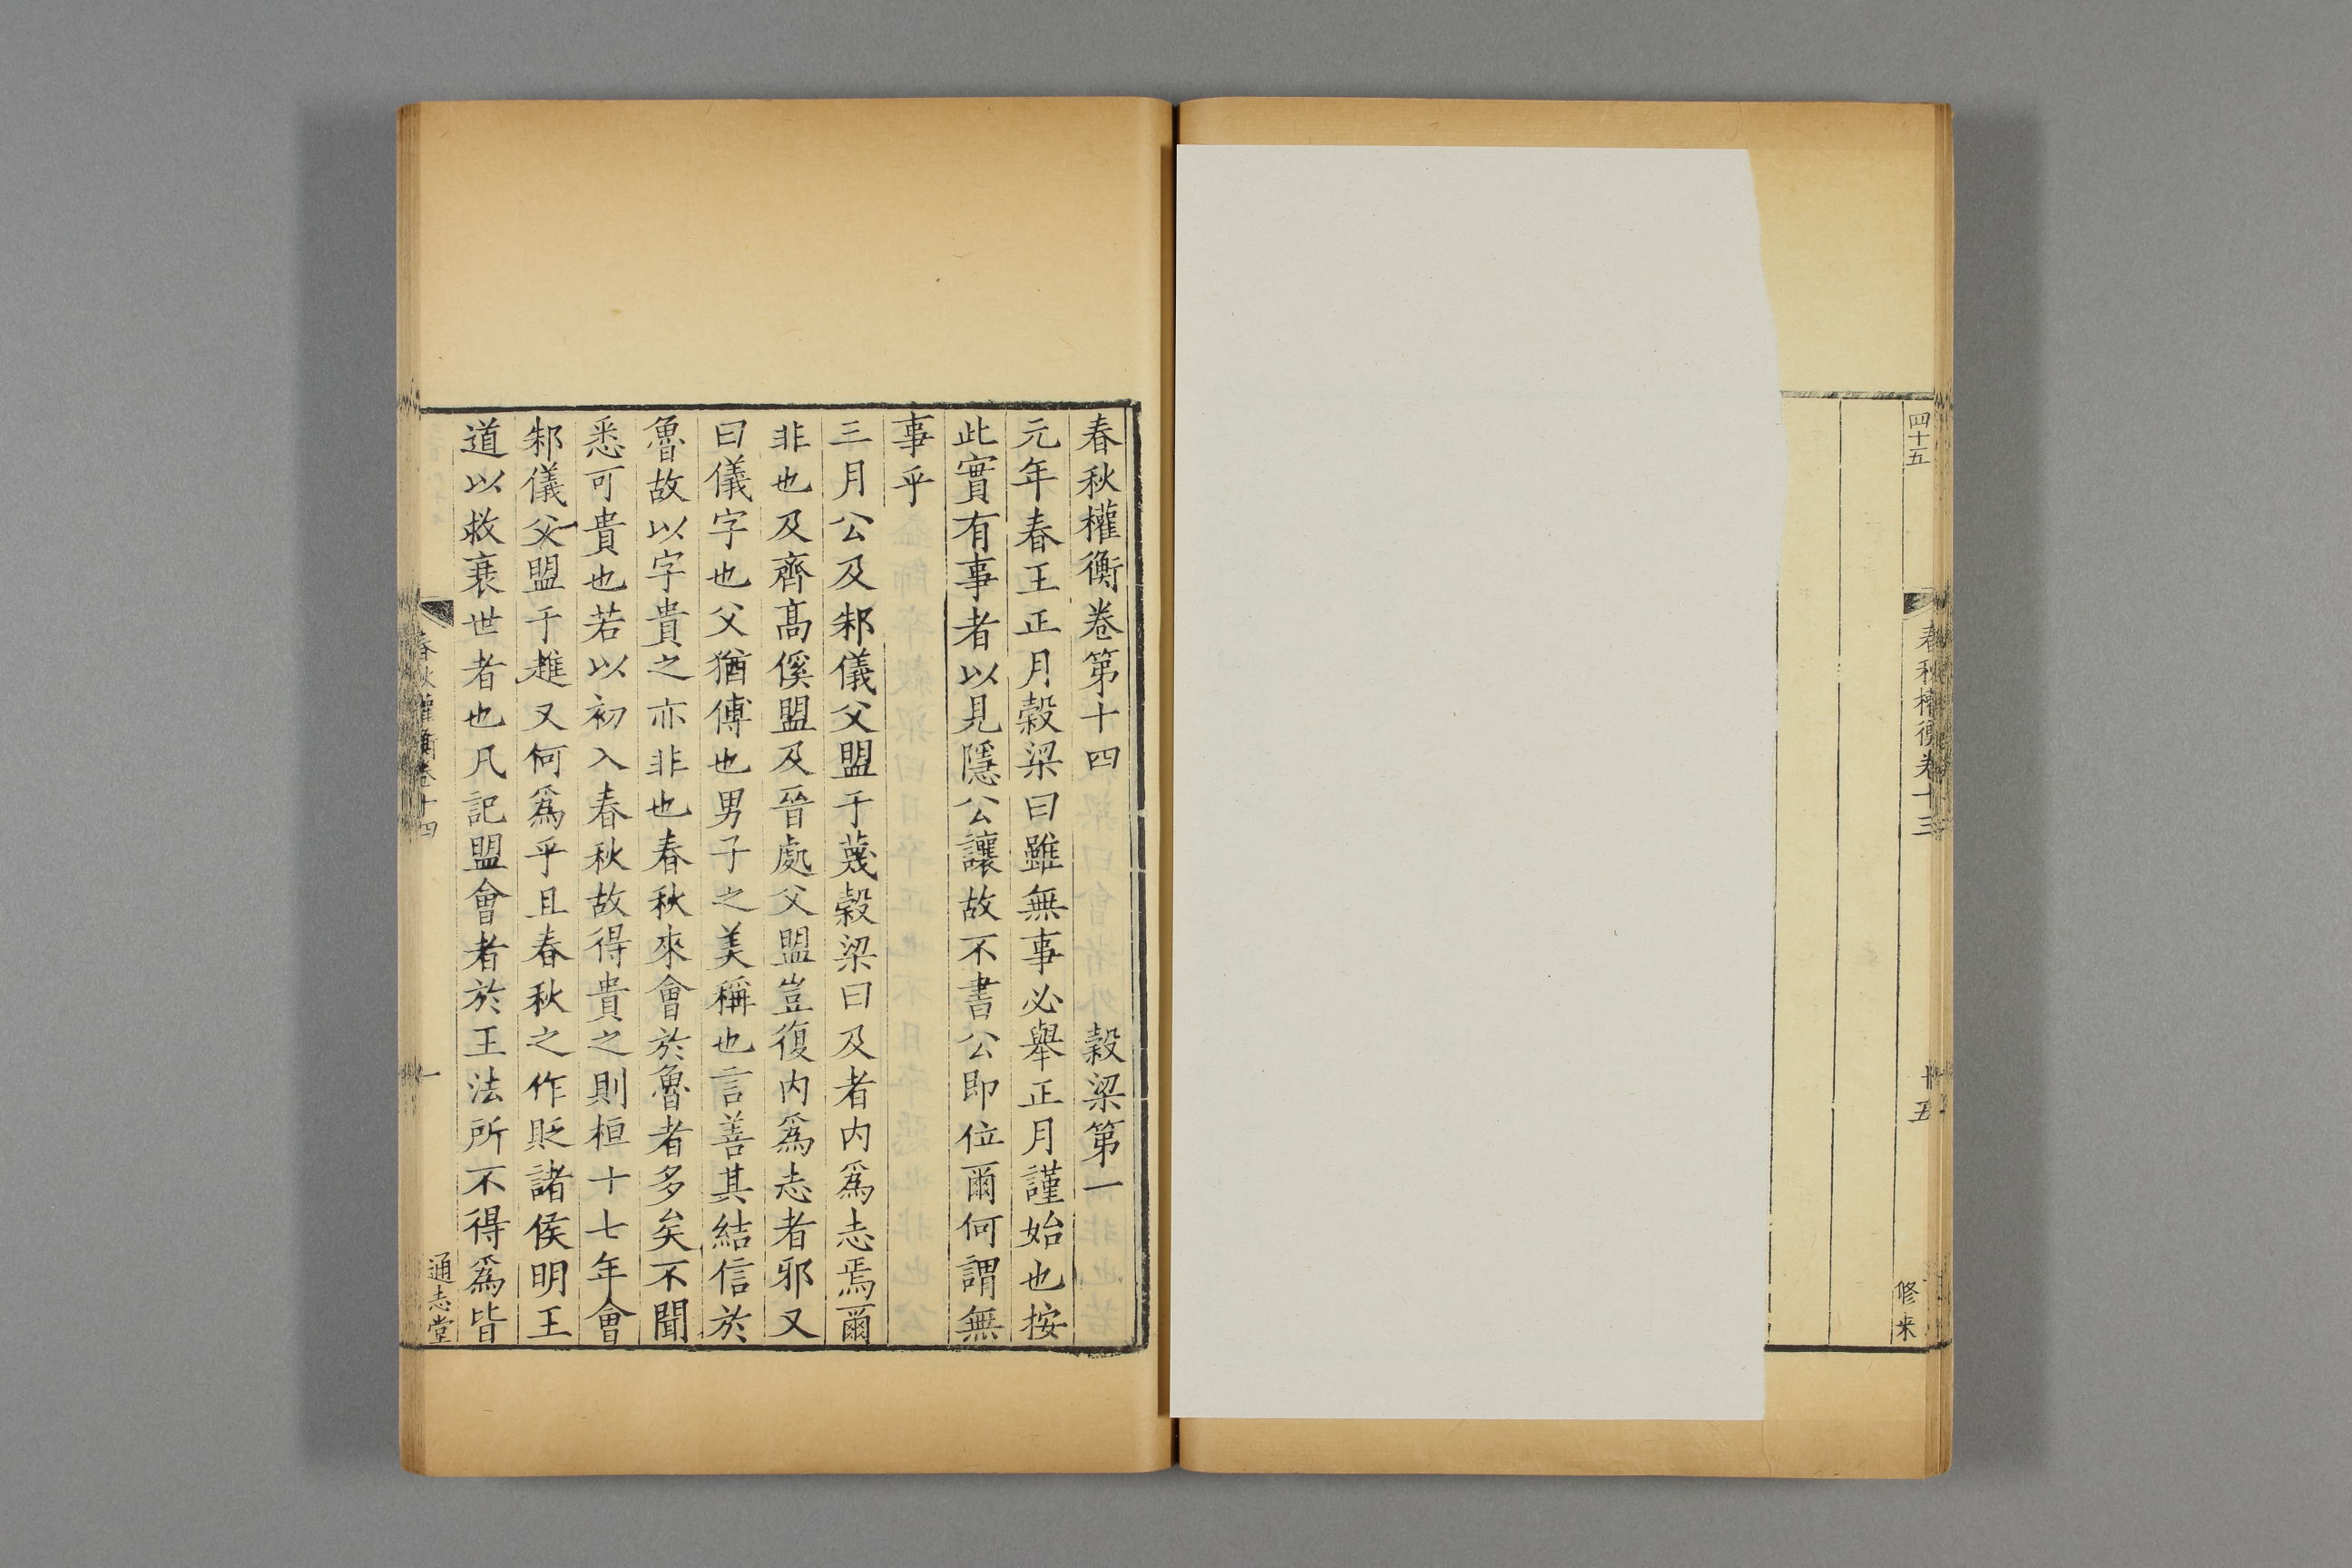 四十五
春秋權衡卷十三
十五
修来
春秋權衡卷第十四 穀梁第一
元年春王正月穀梁曰雖無事必舉正月謹始也按
此實有事者以見隱公讓故不書公即位爾何謂無
事乎
三月公及邾儀父盟于蔑穀梁曰及者內爲志焉爾
非也及齊高傒盟及晉處父盟豈復內爲志者邪又
曰儀字也父猶傅也男子之美稱也言善其結信於
魯故以字貴之亦非也春秋來會於魯者多矣不聞
悉可貴也若以初入春秋故得貴之則桓十七年會
邾儀父盟于趡又何爲乎且春秋之作貶諸侯明王
道以救衰世者也凡記盟會者於王法所不得爲皆
春秋權衡卷十四
一
通志堂